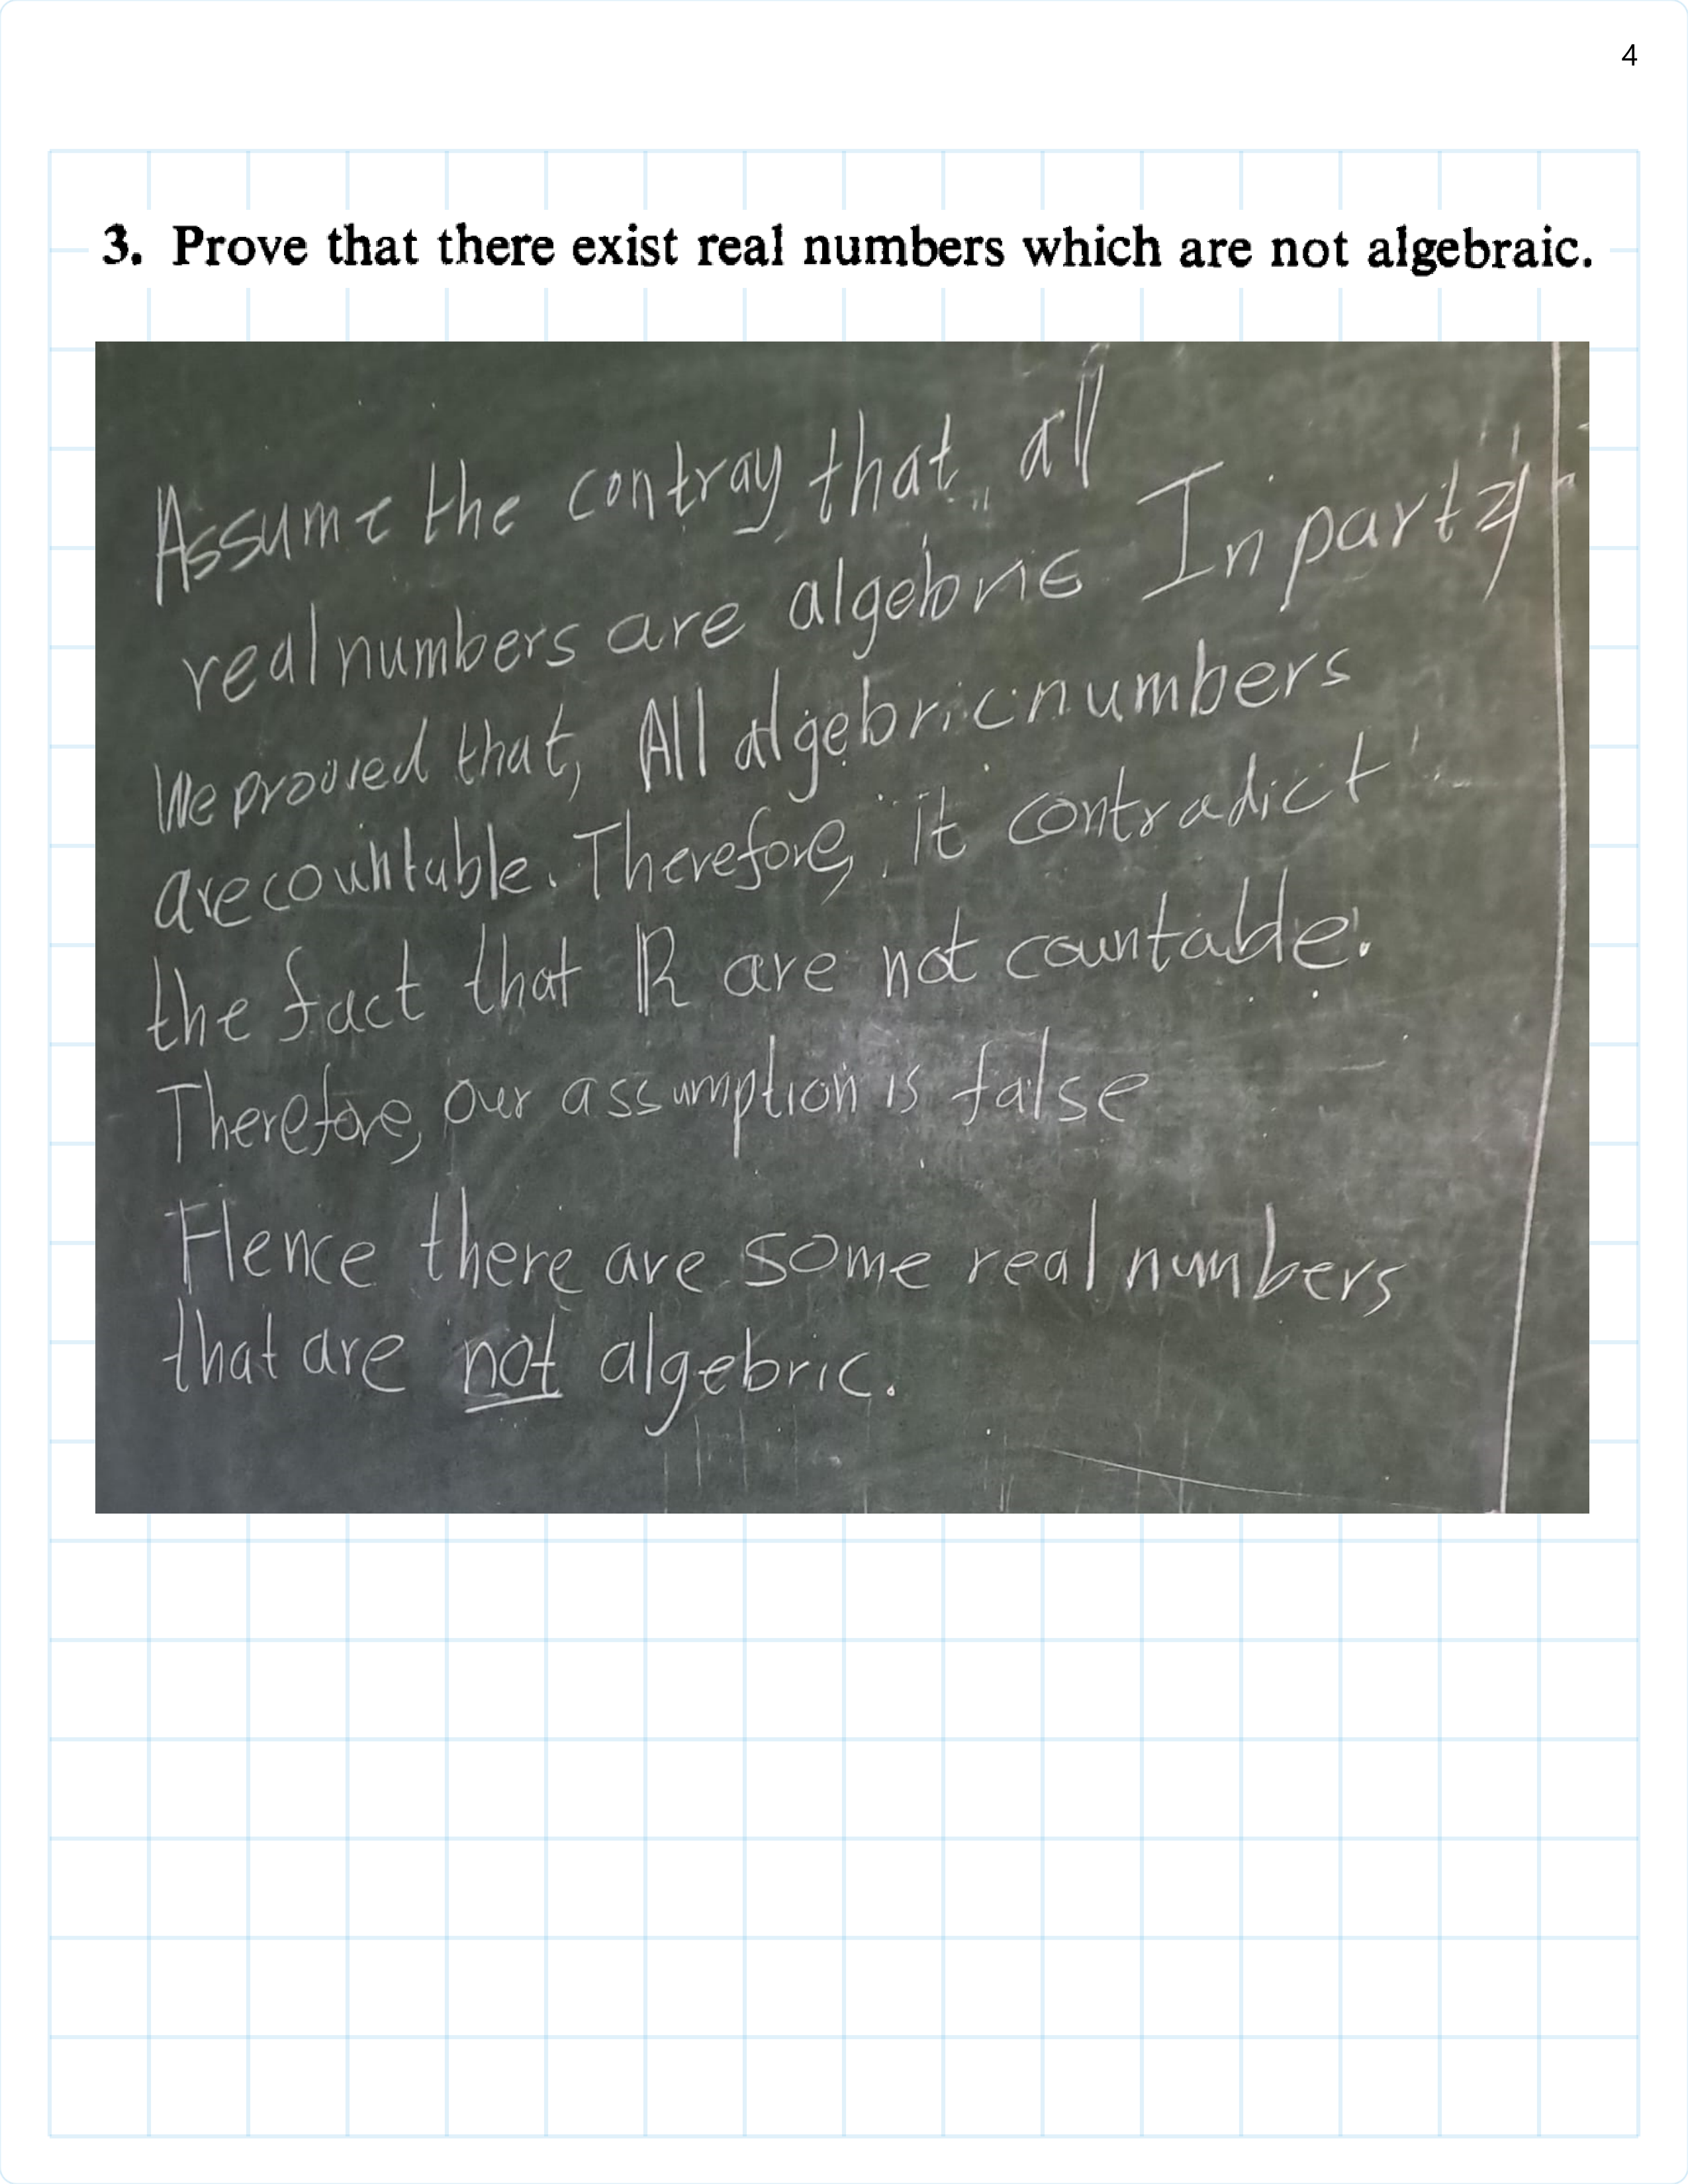 4
3. Prove that there exist real numbers which are not algebraic.
Assume the contray that, all
real numbers are algebric In part
We prooved that, All algebric numbers
are countable. Therefore, it contradict
the fact that ℝ are not countable.
Therefore, our assumption is false
Hence there are some real numbers
that are not algebric.